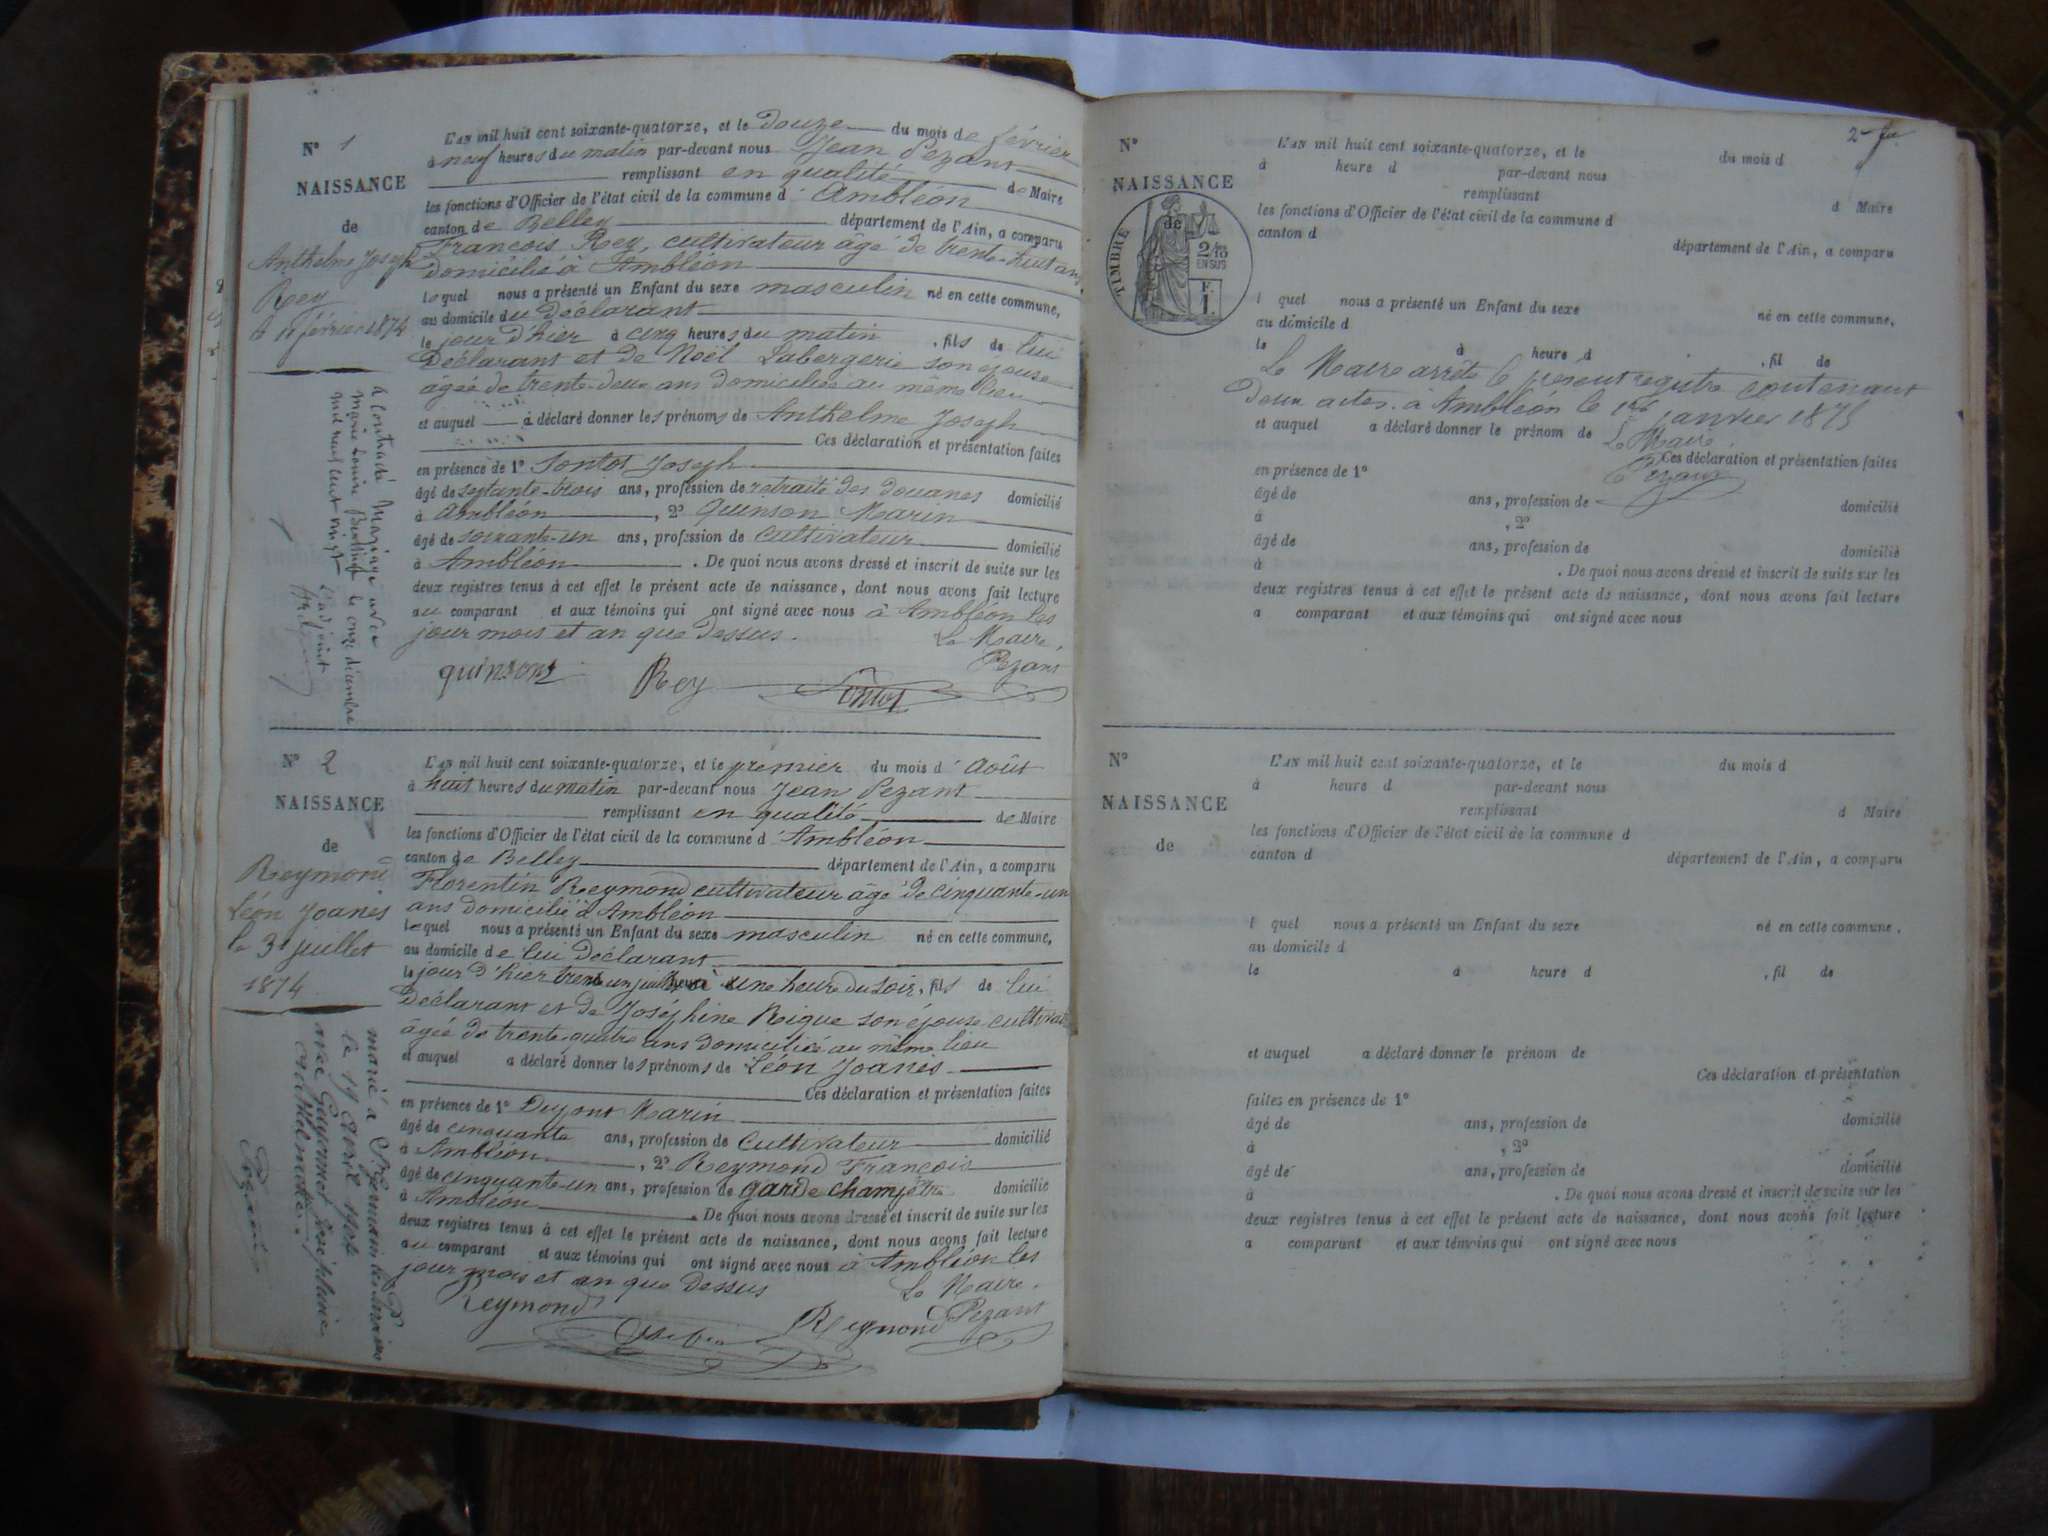 N° 1
NAISSANCE
de
Anthelme Joseph
Rey
le 11 février 1874
L'AN mil huit cent soixante-quatorze, et le douze du mois de février
à neuf heures du matin par-devant nous Jean Pezant
remplissant en qualité de Maire
les fonctions d'Officier de l'état civil de la commune d'Ambléon
canton de Belley département de l'Ain, a comparu
François Rey, cultivateur âgé de trente-huit ans
domicilié à Ambléon
lequel nous a présenté un Enfant du sexe masculin né en cette commune,
au domicile du Déclarant
le jour d'hier à cinq heures du matin, fils de lui
Déclarant et de Noël Labergerie son épouse
âgée de trente-deux ans domiciliée au même lieu
et auquel a déclaré donner les prénoms de Anthelme Joseph
Ces déclaration et présentation faites
en présence de 1° Sontot Joseph
âgé de septante-trois ans, profession de retraité des douanes domicilié
à Ambléon, 2° Quinson Marin
âgé de soixante-un ans, profession de cultivateur domicilié
à Ambléon. De quoi nous avons dressé et inscrit de suite sur les
deux registres tenus à cet effet le présent acte de naissance, dont nous avons fait lecture
au comparant et aux témoins qui ont signé avec nous à Ambléon les
jour mois et an que dessus. Le Maire,
Pezant
quinson Rey Sontot
a contracté Mariage avec
Marie Louise le onze décembre
mil neuf cent vingt
L'adjoint
N° 2
NAISSANCE
de
Reymond
Léon Joanès
le 31 juillet
1874
L'AN mil huit cent soixante-quatorze, et le premier du mois d'Août
à huit heures du matin par-devant nous Jean Pezant
remplissant en qualité de Maire
les fonctions d'Officier de l'état civil de la commune d'Ambléon
canton de Belley département de l'Ain, a comparu
Florentin Reymond cultivateur âgé de cinquante-un
ans domicilié à Ambléon
lequel nous a présenté un Enfant du sexe masculin né en cette commune,
au domicile de lui Déclarant
le jour d'hier trente un juillet à une heure du soir, fils de lui
Déclarant et de Joséphine Rigue son épouse
âgée de trente-quatre ans domiciliée au même lieu
et auquel a déclaré donner les prénoms de Léon Joanès
Ces déclaration et présentation faites
en présence de 1° Marin
âgé de cinquante ans, profession de Cultivateur domicilié
à Ambléon, 2° Reymond François
âgé de cinquante-un ans, profession de garde champêtre domicilié
à Ambléon. De quoi nous avons dressé et inscrit de suite sur les
deux registres tenus à cet effet le présent acte de naissance, dont nous avons fait lecture
au comparant et aux témoins qui ont signé avec nous à Ambléon les
jour mois et an que dessus Le Maire.
Reymond Reymond Pezant
marié à
le 19 avril 1904
avec Guyonnet Joséphine
2e
N°
NAISSANCE
de
TIMBRE
2/10
EN SUS
F.
1.
L'AN mil huit cent soixante-quatorze, et le du mois d
à heure d par-devant nous
remplissant d Maire
les fonctions d'Officier de l'état civil de la commune d
canton d département de l'Ain, a comparu
l quel nous a présenté un Enfant du sexe né en cette commune,
au domicile d
le à heure d, fil de
Le Maire arrête le présent registre contenant
deux actes. à Ambléon le 1er janvier 1875
et auquel a déclaré donner le prénom de
Le Maire
Ces déclaration et présentation faites
Pezant
en présence de 1°
âgé de ans, profession de domicilié
à , 2°
âgé de ans, profession de domicilié
à . De quoi nous avons dressé et inscrit de suite sur les
deux registres tenus à cet effet le présent acte de naissance, dont nous avons fait lecture
a comparant et aux témoins qui ont signé avec nous
N°
NAISSANCE
de
L'AN mil huit cent soixante-quatorze, et le du mois d
à heure d par-devant nous
remplissant d Maire
les fonctions d'Officier de l'état civil de la commune d
canton d département de l'Ain, a comparu
l quel nous a présenté un Enfant du sexe né en cette commune,
au domicile d
le à heure d , fil de
et auquel a déclaré donner le prénom de
Ces déclaration et présentation
faites en présence de 1°
âgé de ans, profession de domicilié
à , 2°
âgé de ans, profession de domicilié
à . De quoi nous avons dressé et inscrit de suite sur les
deux registres tenus à cet effet le présent acte de naissance, dont nous avons fait lecture
a comparant et aux témoins qui ont signé avec nous